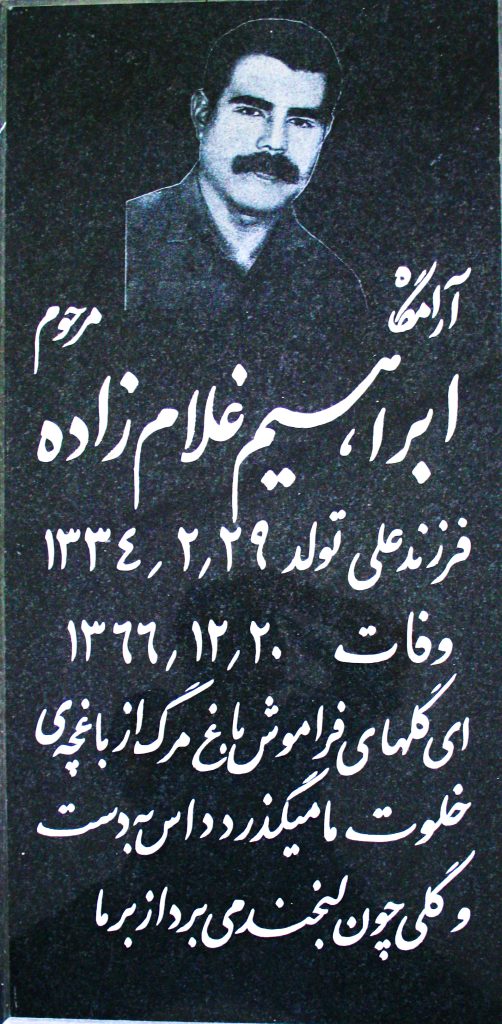 آرامگاه مرحوم
ابراهیم غلام زاده
فرزند علی تولد ۲۹٫۲٫۱۳۳٤
وفات ۲۰٫۱۲٫۱۳٦٦
ای گلهای فراموش باغ مرگ از باغچه ی
خلوت ما میگذرد داس به دست
و گلی چون لبخند می برد از بر ما